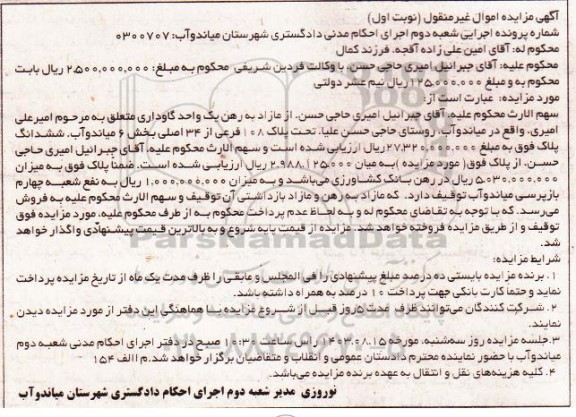 آگهی مزایده اموال غیرمنقول (نوبت اول)
شماره پرونده اجرایی شعبه دوم اجرای احکام مدنی دادگستری شهرستان میاندوآب: ۰۳۰۰۷۰۷
محکوم له: آقای امین علی زاده آقجه، فرزند کمال
محکوم علیه: آقای جبرائیل امیری حاجی حسن، با وکالت فردین شریفی محکوم به مبلغ: ۲،۵۰۰،۰۰۰،۰۰۰ ریال بابت
محکوم به و مبلغ ۱۲۵،۰۰۰،۰۰۰ ریال نیم عشر دولتی
مورد مزایده: عبارت است از:
سهم الارث محکوم علیه، آقای جبرائیل امیری حاجی حسن، از مازاد به رهن یک واحد گاوداری متعلق به مرحوم امیرعلی
امیری، واقع در میاندوآب، روستای حاجی حسن علیا، تحت پلاک ۱۰۸ فرعی از ۳۴ اصلی بخش ۶ میاندوآب، ششدانگ
پلاک فوق به مبلغ ۲۷،۳۲۰،۰۰۰،۰۰۰ ریال ارزیابی شده است و سهم الارث محکوم علیه، آقای جبرائیل امیری حاجی
حسن، از پلاک فوق( مورد مزایده ) به میان ۲،۹۸۸،۱۲۵،۰۰۰ ریال ارزیابی شده است. ضمنا پلاک فوق به میزان
۵،۰۳۰،۰۰۰،۰۰۰ ریال در رهن بانک کشاورزی می‌باشد و به میزان ۱،۰۰۰،۰۰۰،۰۰۰ ریال به نفع شعبه چهارم
بازپرسی میاندوآب توقیف دارد. که مازاد به رهن و مازاد بازداشتی آن توقیف و سهم الارث محکوم علیه به فروش
می‌رسد. که با توجه به تقاضای محکوم له و به لحاظ عدم پرداخت محکوم به از طرف محکوم علیه، مورد مزایده فوق
توقیف و از طریق مزایده فروخته خواهد شد. مزایده از قیمت پایه شروع و به بالاترین قیمت پیشنهادی واگذار خواهد
شد.
شرایط مزایده:
۱. برنده مزایده بایستی ده درصد مبلغ پیشنهادی را فی المجلس و مابقی را ظرف مدت یک ماه از تاریخ مزایده پرداخت
نماید و حتماً کارت بانکی جهت پرداخت ۱۰ درصد به همراه داشته باشد.
۲. شرکت کنندگان می‌توانند ظرف مدت ۵روز قبل از شروع مزایده با هماهنگی این دفتر از مورد مزایده دیدن
نمایند.
۳.جلسه مزایده روز سه‌شنبه، مورخه ۱۴۰۳،۰۸،۱۵ راس ساعت ۱۰:۳۰ صبح در دفتر اجرای احکام مدنی شعبه دوم
میاندوآب با حضور نماینده محترم دادستان عمومی و انقلاب و متقاضیان برگزار خواهد شد.م الف ۱۵۴
۴. کلیه هزینه‌های نقل و انتقال به عهده برنده مزایده می‌باشد.
نوروزی مدیر شعبه دوم اجرای احکام دادگستری شهرستان میاندوآب
ParsNamadData